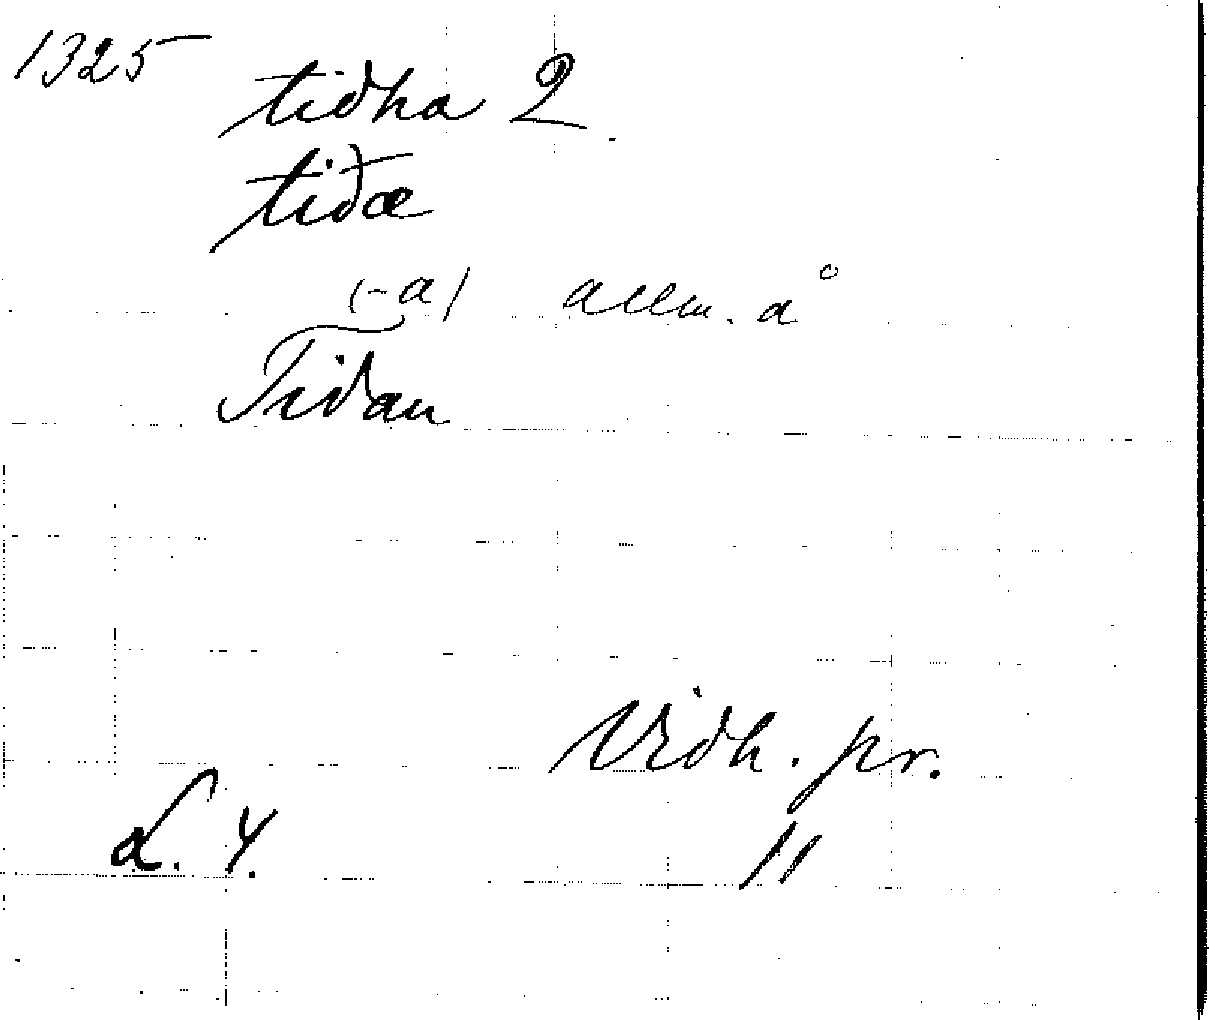 1325
tidha 2
tiđæ
(-a) allm. å
Tidan
Vidh. pr.
d. 4. 11